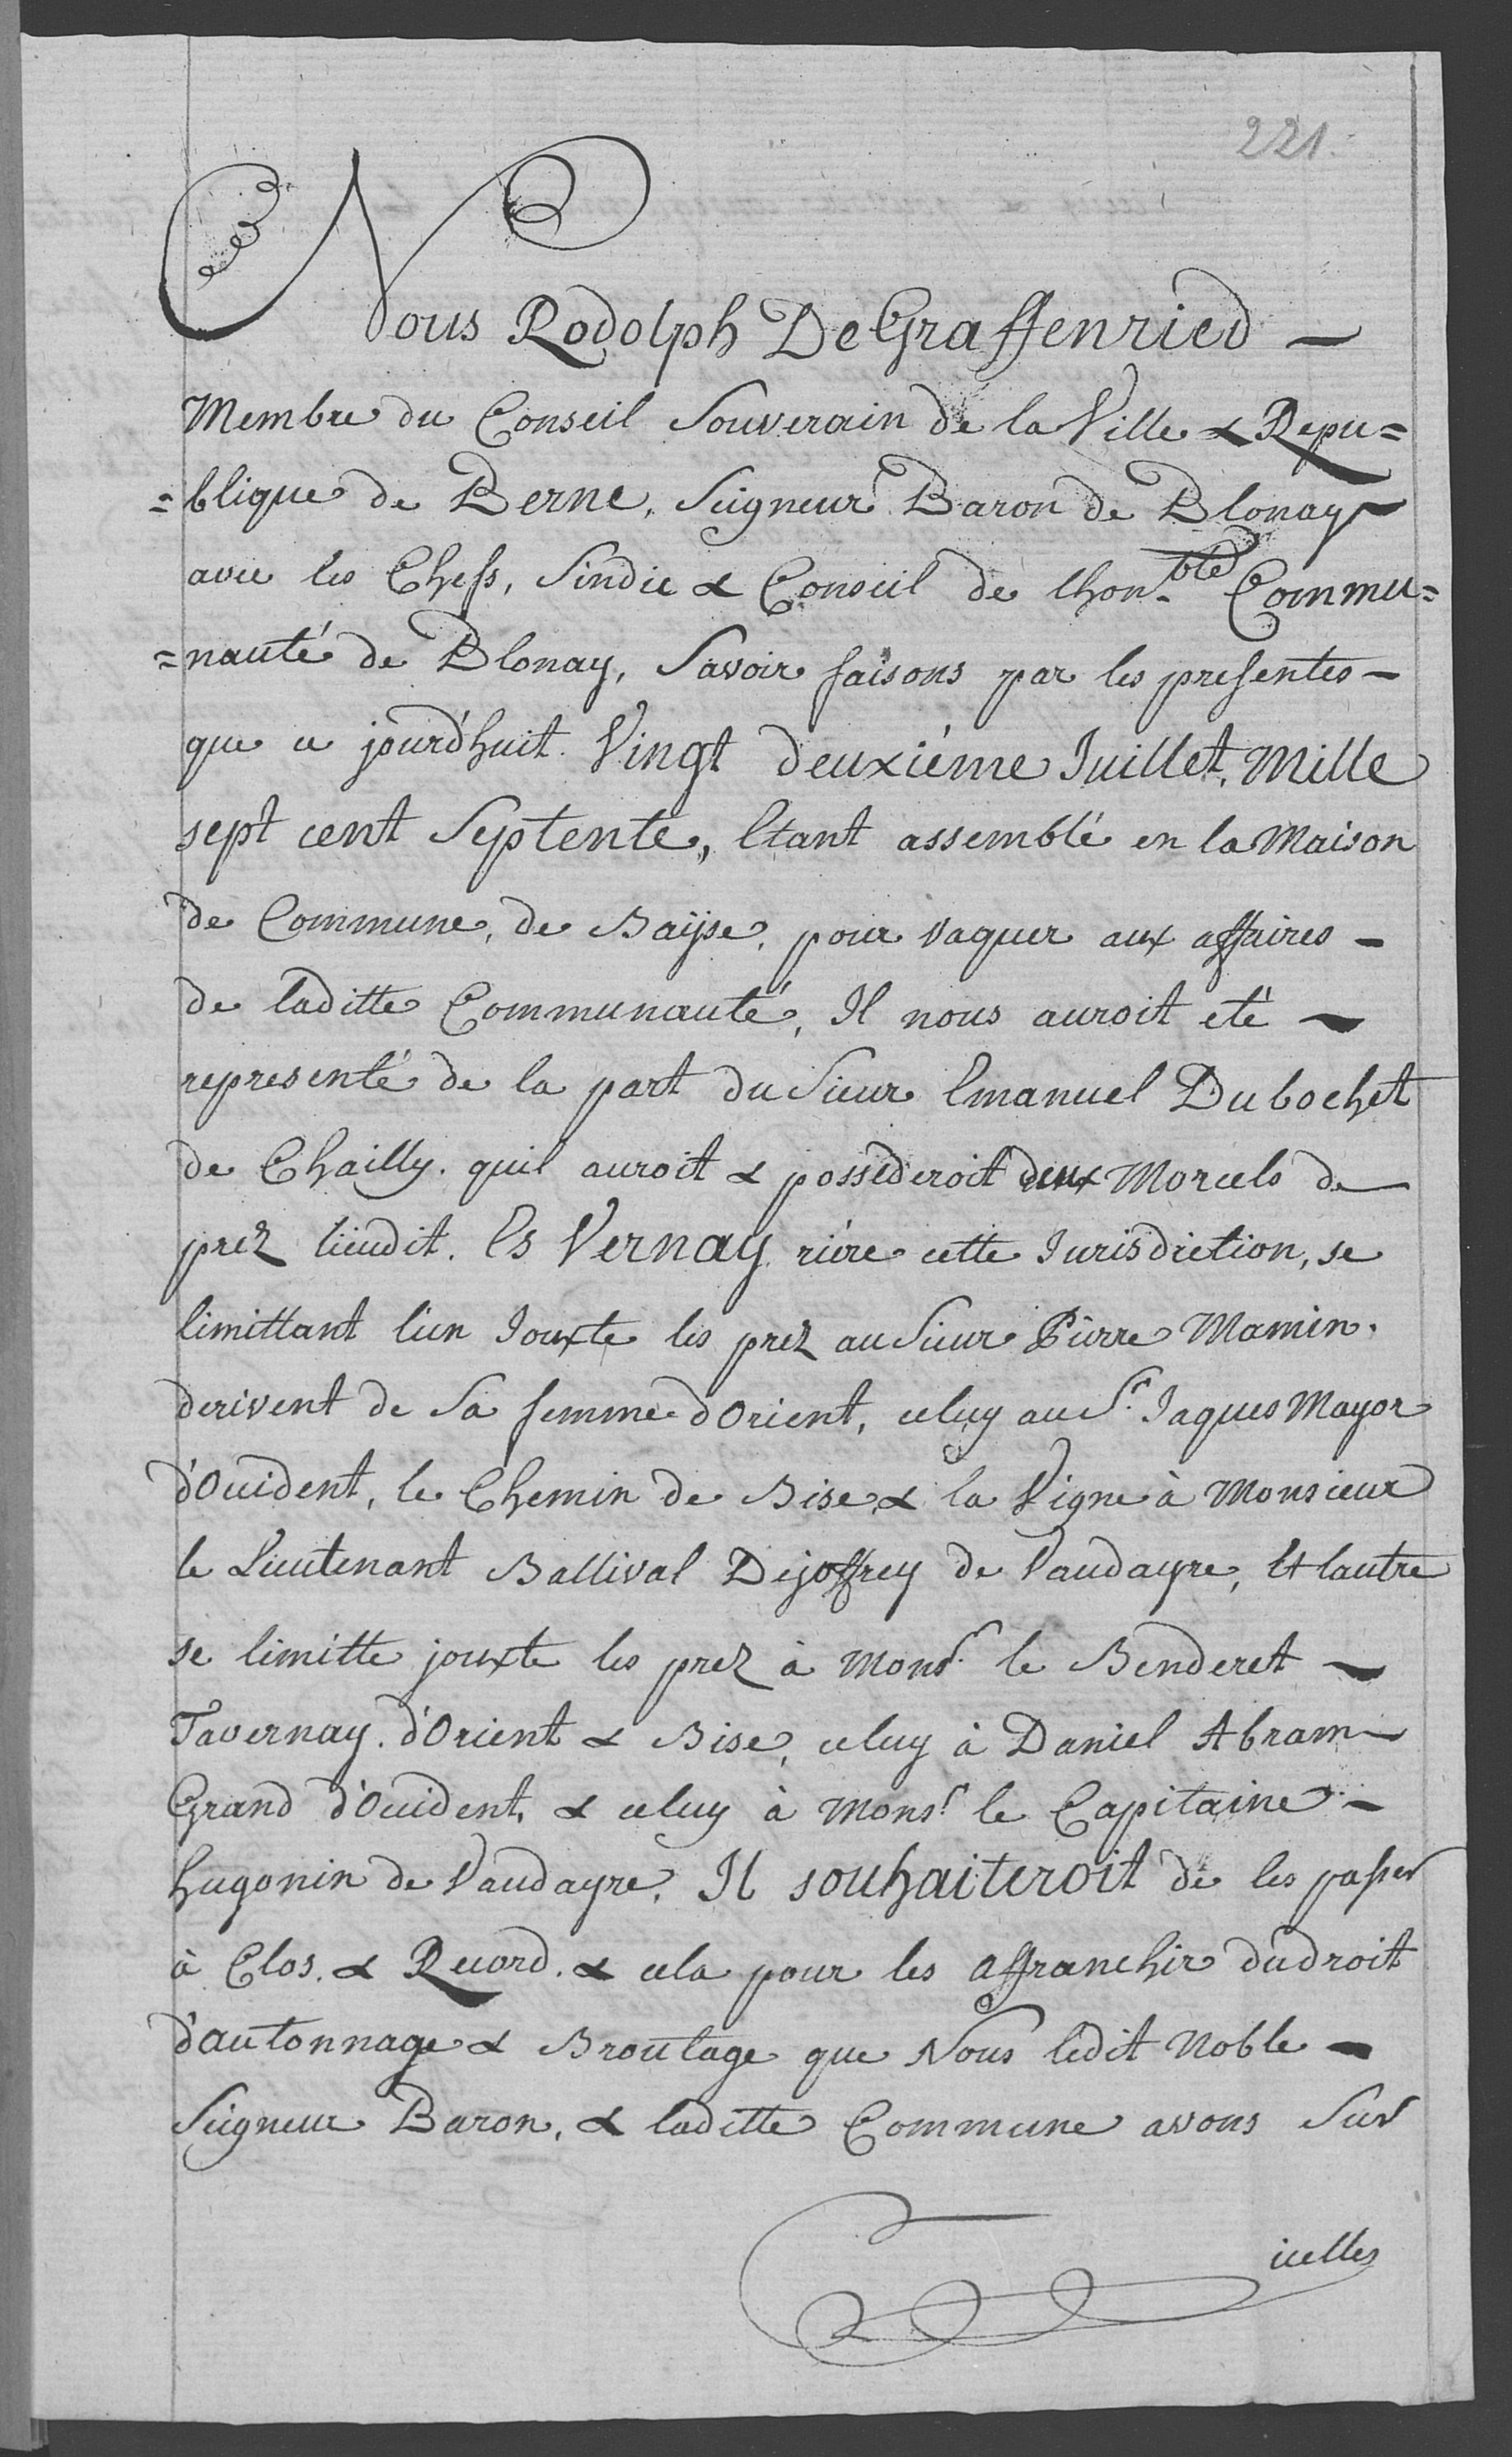 221.
Nous Rodolph DeGraffenried —
Membre du Conseil Souverain de la Ville & Repu=
=blique de Berne, Seigneur Baron de Blonay
avec les Chefs, Sindic & Conseil de lhon.ble Commu=
=nauté de Blonay, Savoir faisons par les presentes —
que ce jourd'huit Vingt deuxiéme Juillet, Mille
sept cent Septente, Etant assemblé en la Maison
de Commune, de Baÿse, pour vaquer aux affaires —
de laditte Communauté, Il nous auroit eté —
representé de la part du Sieur Emanuel Dubochet
de Chailly. quil auroit & possederoit deux Morcels de
prez lieudit. Es Vernay riére cette Jurisdiction, se
limittant l'un Jouxte les prez au Sieur Pierre Mamin.
derivent de Sa femme d'Orient, celuy au Sr. Jaques Mayor
d'Occident, le Chemin de Bise & la Vigne à Monsieur
le Lieutenant Ballival Dejoffrey de Vaudayre, Et lautre
se limitte jouxte les prez à Monsr. le Benderet —
Tavernay. d'Orient & Bise, celuy à Daniel Abram —
Grand d'Occident, & celuy à Monsr. le Capitaine —
hugonin de Vaudayre, Il souhaiteroit de les passer
à Clos. & Record. & cela pour les affranchir du droit
d'autonnage & Broutage que Nous ledit Noble —
Seigneur Baron, & laditte Commune avons Sur
icelles